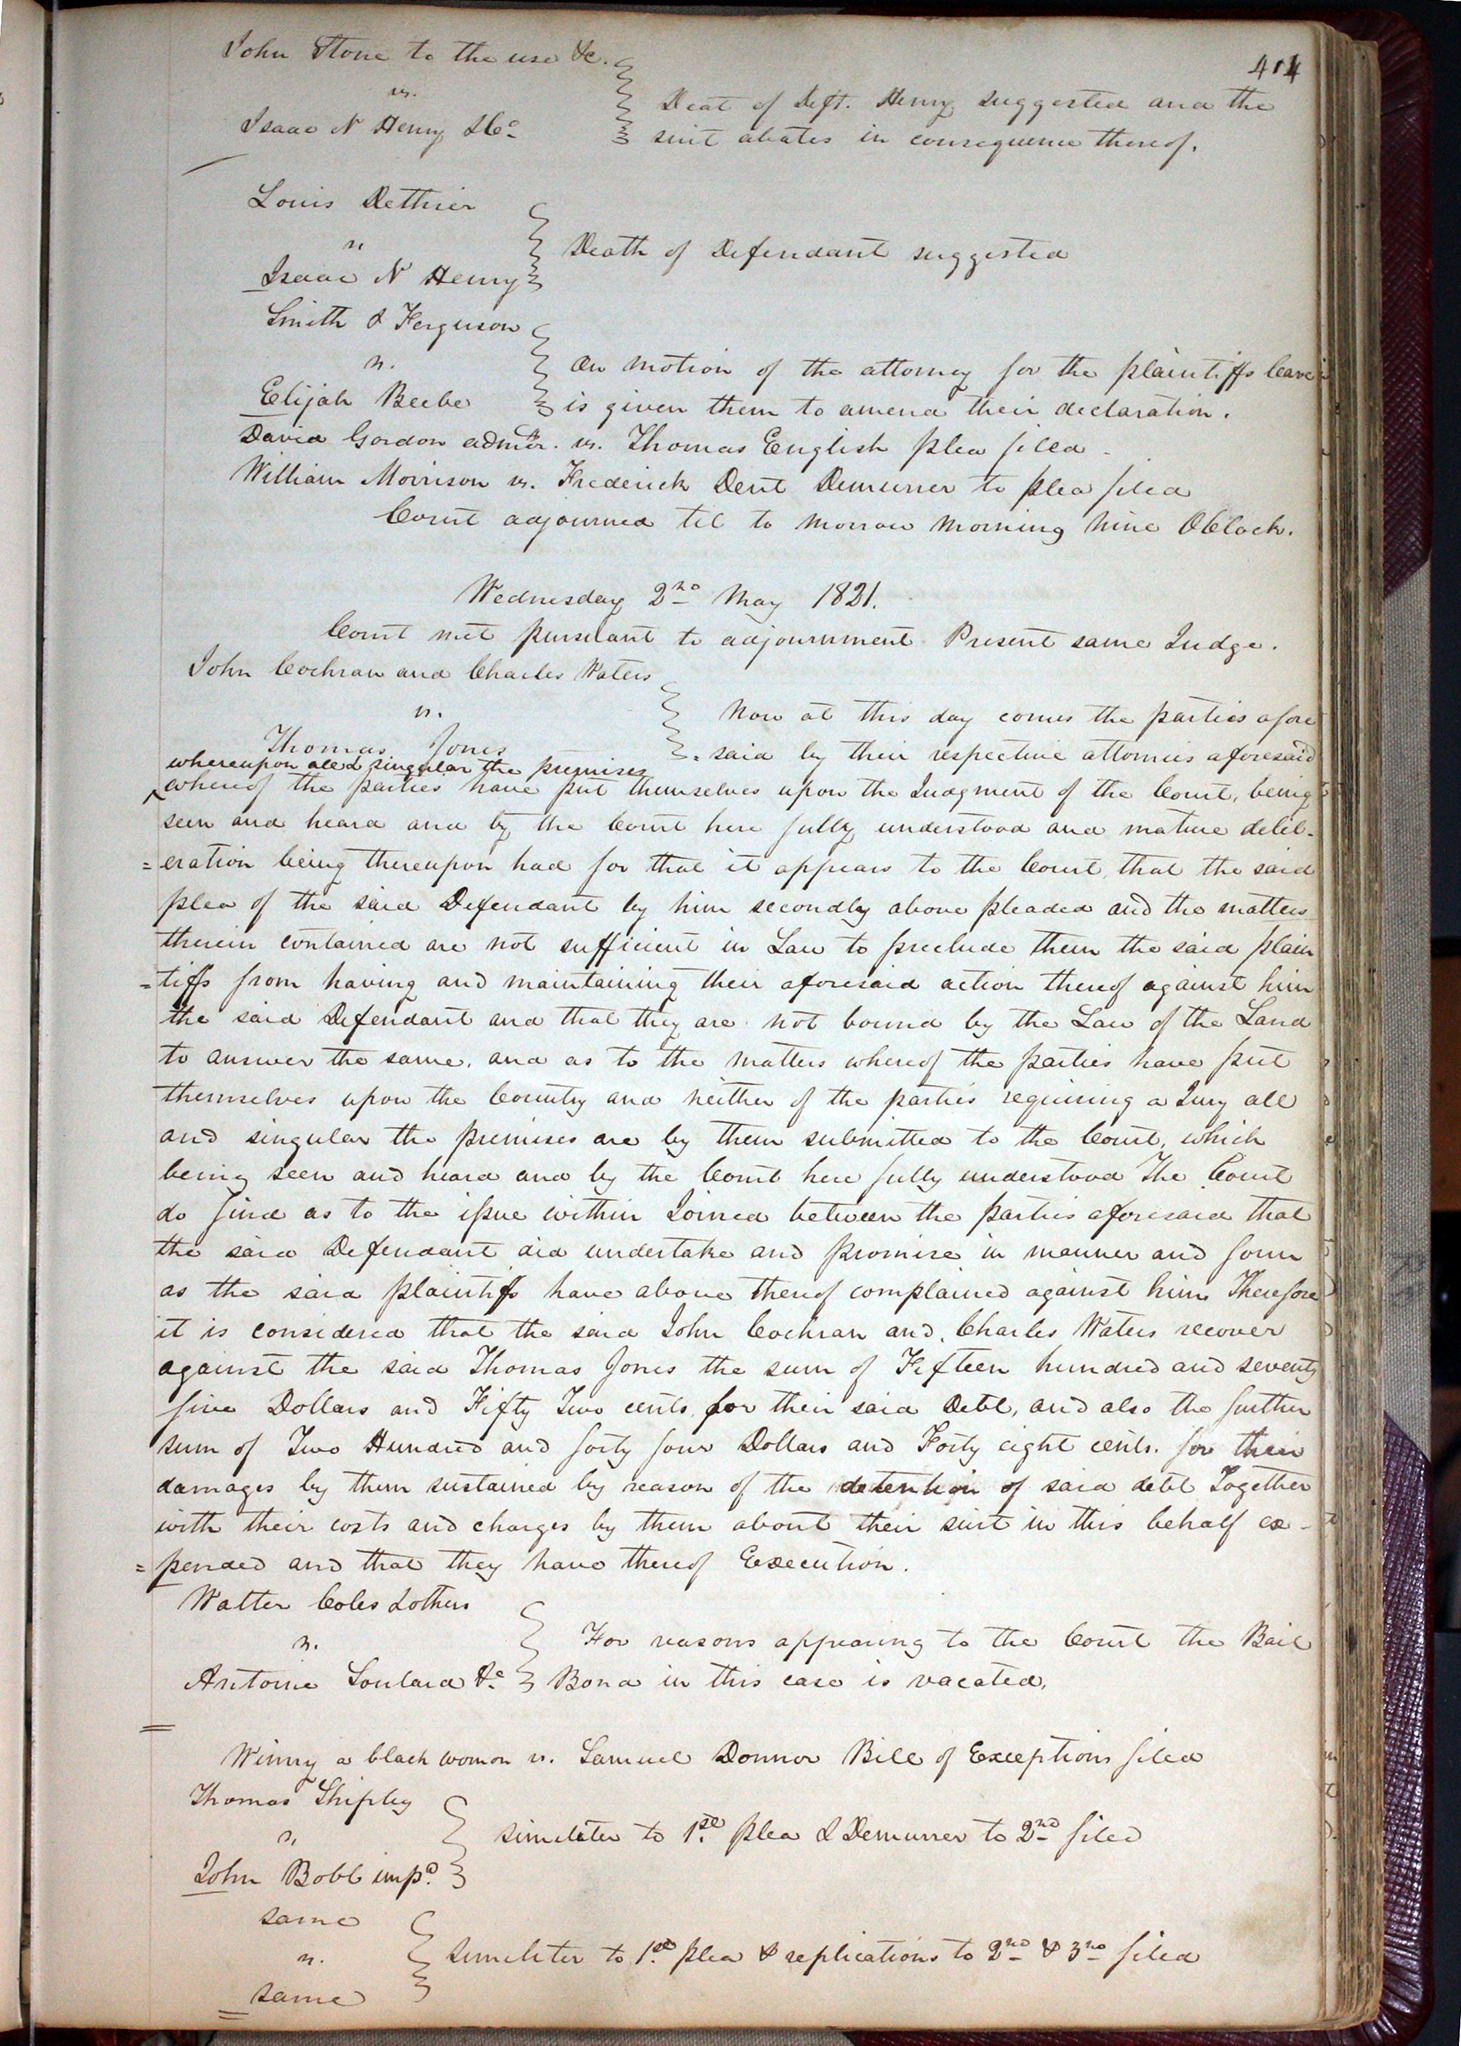 414
John Stone to the use &c.
vs.
Isaac N Henry &Co
Deat of Deft. Henry suggested and the
suit abates in consequence thereof.
Louis Dethier
vs
Isaac N Henry
Death of Defendant suggested
Smith & Ferguson
vs.
Elijah Beebe
On motion of the attorney for the plaintiffs leave
is given them to amend their declaration.
David Gordon admtr. vs. Thomas English plea filed
William Morrison vs. Frederick Dent Demurrer to plea filed
Court adjourned til to morrow morning nine OClock.
Wednesday 2nd May 1821.
Court met pursuant to adjournment Present same Judge.
John Cochran and Charles Waters
vs.
Thomas Jones
Now at this day comes the parties afore
=said by their respective attornies aforesaid
whereupon all & singular the premises
whereof the parties have put themselves upon the Judgment of the Court, being
seen and heard and by the Court here fully understood and mature delib-
=eration being thereupon had for that it appears to the Court, that the said
plea of the said Defendant by him secondly above pleaded and the matters
therein contained are not sufficient in Law to preclude them the said plain
=tiffs from having and maintaining their aforesaid action thereof against him
the said Defendant and that they are not bound by the Law of the Land
to answer the same, and as to the matters whereof the parties have put
themselves upon the Country and neither of the parties requiring a Jury all
and singular the premises are by them submitted to the Court, which
being seen and heard and by the Court here fully understood The Court
do find as to the issue within Joined between the parties aforesaid that
the said Defendant did undertake and promise in manner and form
as the said plaintiffs have above thereof complained against him Therefore
it is considered that the said John Cochran and Charles Waters recover
against the said Thomas Jones the sum of Fifteen hundred and seventy
five Dollars and Fifty Two cents for their said Debt, and also the further
sum of Two Hundred and forty four Dollars and Forty eight cents. for their
damages by them sustained by reason of the detention of said debt Together
with their costs and charges by them about their suit in this behalf ex-
=pended and that they have thereof Execution.
Walter Coles & others
vs.
Antoine Soulard &c
For reasons appearing to the Court the Bail
Bond in this case is vacated.
Winny a black woman vs. Samuel Donner Bill of Exceptions filed
Thomas Shipley
vs,
John Bobb impd.
similiter to 1st. plea & Demurrer to 2nd filed
same
vs.
same
similiter to 1st. plea & replications to 2nd & 3rd filed